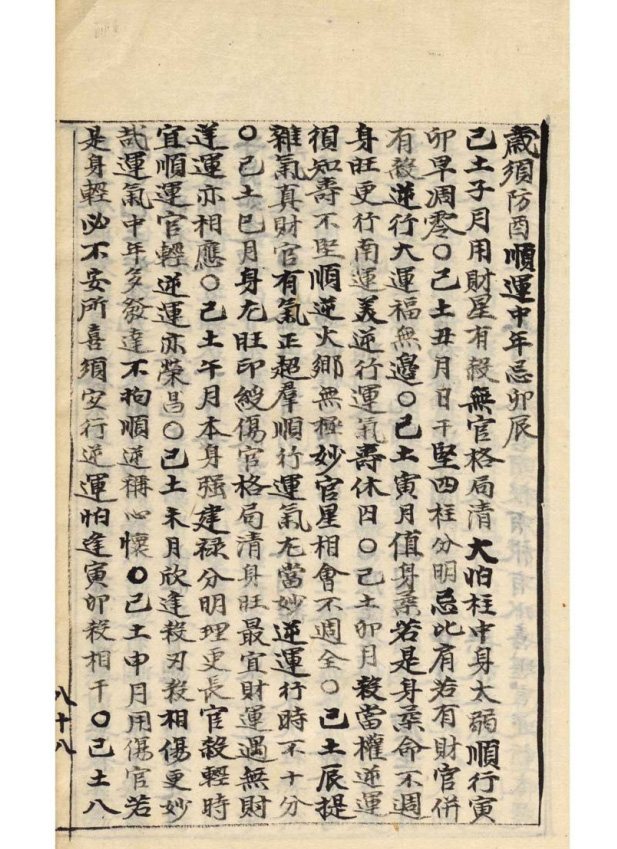 歲須防酉順運中年忌卯辰
己土子月用財星有殺無官格局清大怕柱中身太弱順行寅
卯早凋零〇己土丑月日干堅四柱分明忌比肩若有財官併
有殺逆行大運福無邊〇己土寅月值身柔若是身柔命不週
身旺更行南運美逆行運氣壽休囚〇己土卯月殺當權逆運
須知壽不堅順逆火鄉無極妙官星相會不週全〇己土辰提
雜氣真財官有氣正超羣順行運氣尤當妙逆運行時不十分
〇己土巳月身尤旺印綬傷官格局清身旺最宜財運遇無財
逢運亦相應〇己土午月本身强建禄分明理更長官殺輕時
宜順運官輕逆運亦榮昌〇己土未月欣逢殺刃殺相傷更妙
哉運氣中年多發達不拘順逆稱心懷〇己土申月用傷官若
是身輕必不安所喜須安行逆運怕逢寅卯殺相干〇己土八
八十八